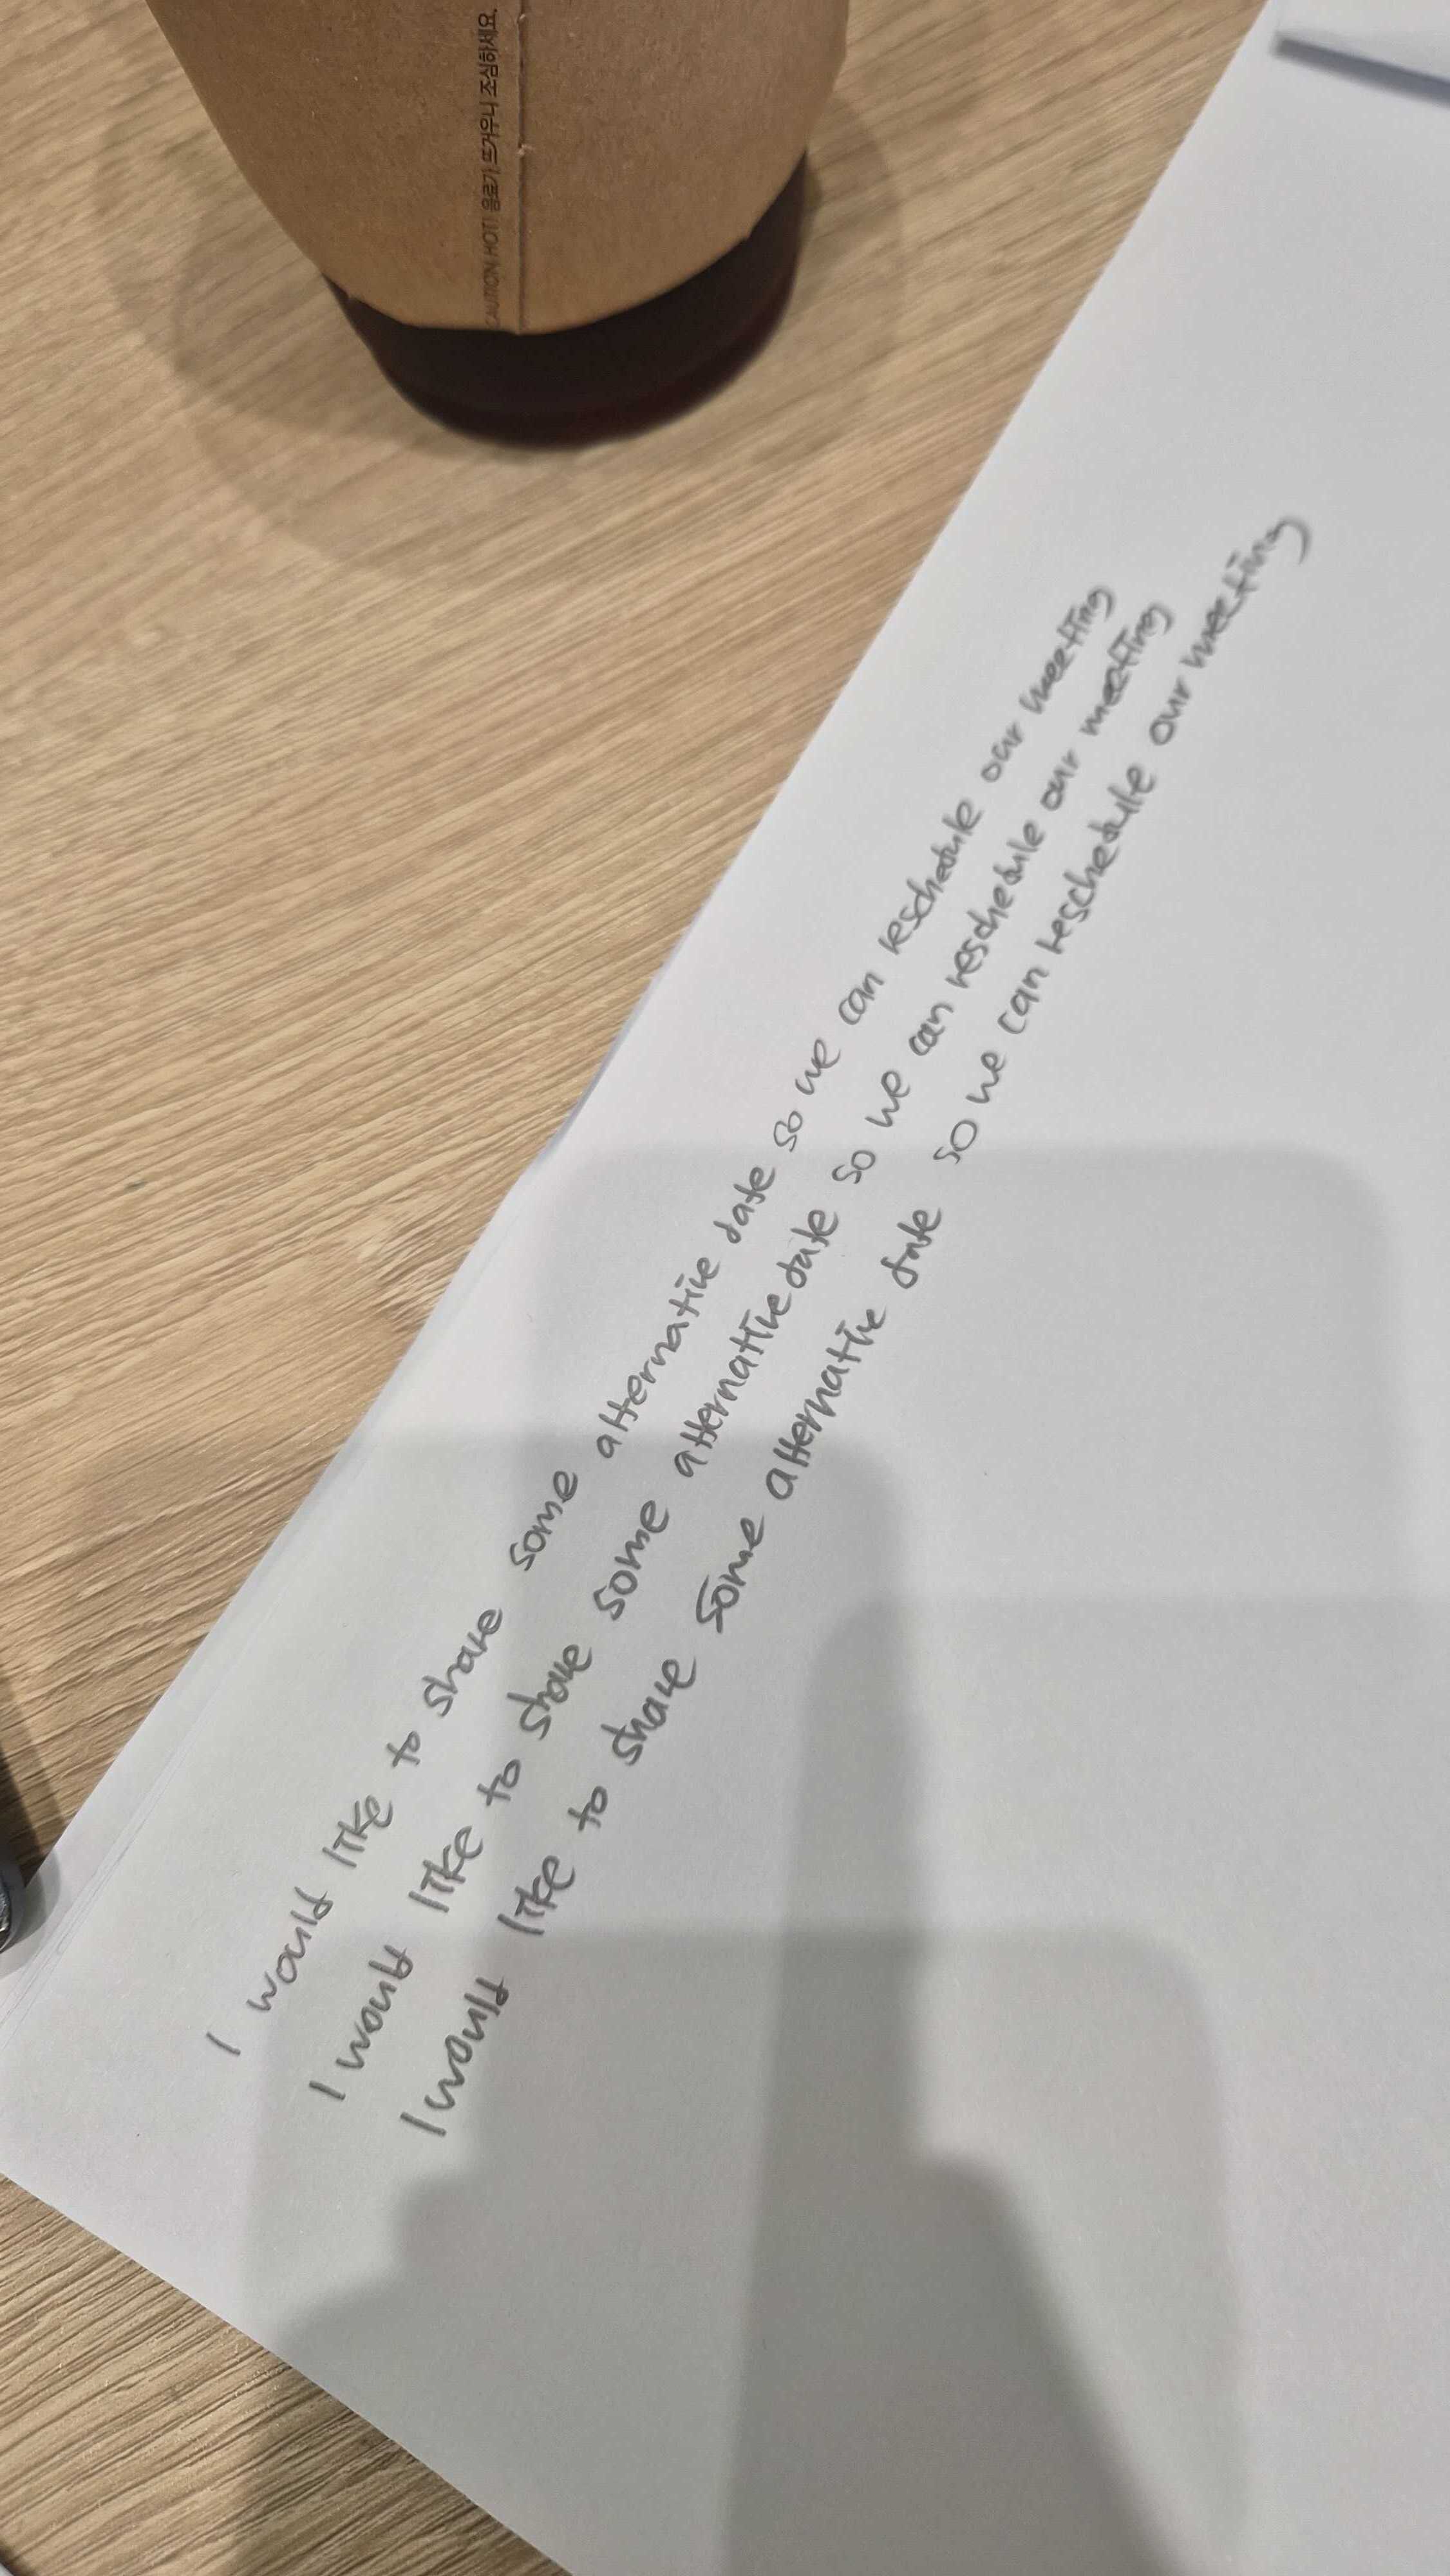 CAUTION, HOT! 음료가 뜨거우니 조심하세요.
I would like to share some alternative date so we can reschedule our meeting
I would like to share some alternative date so we can reschedule our meeting
I would like to share some alternative date so we can reschedule our meeting